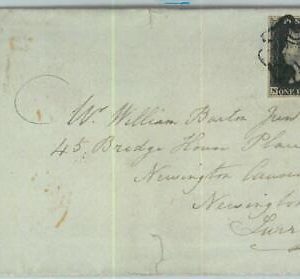 PO
NONE
Mr. William Barton Junr
45. Bridge House Place
Newington Causew
Newington
Surr